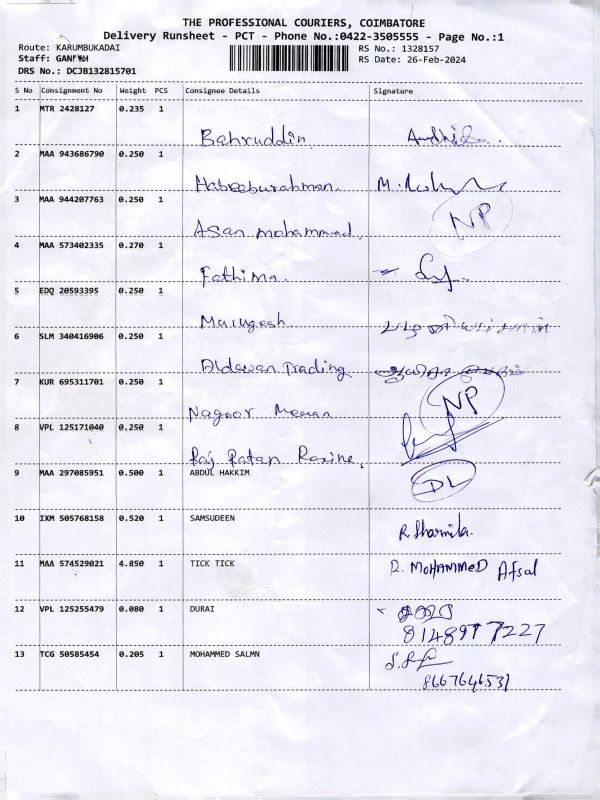 THE PROFESSIONAL COURIERS, COIMBATORE
Delivery Runsheet - PCT - Phone No.:0422-3505555 - Page No.:1
Route: KARUMBUKADAI
RS No.: 1328157
Staff:
RS Date: 26-Feb-2024
DRS No.: DCJB132815701
S No Consignment No Weight PCS Consignee Details Signature
1 MTR 2428127 0.235 1
Bahruddin
2 MAA 943686790 0.250 1
Habeeburahman. M.
3 MAA 944207763 0.250 1
Asan mohammed. NP
4 MAA 573402335 0.270 1
Fathima.
5 EDQ 20593395 0.250 1
Marugesh
6 SLM 340416906 0.250 1
Trading
7 KUR 695311701 0.250 1
Nagoor NP
8 VPL 125171040 0.250 1
Raj Ratan
9 MAA 297085951 0.500 1 ABDUL HAKKIM
DL
10 IXM 505768158 0.520 1 SAMSUDEEN
R. Sharmila.
11 MAA 574529021 4.850 1 TICK TICK
R. MOHAMMED Afsal
12 VPL 125255479 0.080 1 DURAI
8148977227
13 TCG 50585454 0.205 1 MOHAMMED SALMN
8667646531